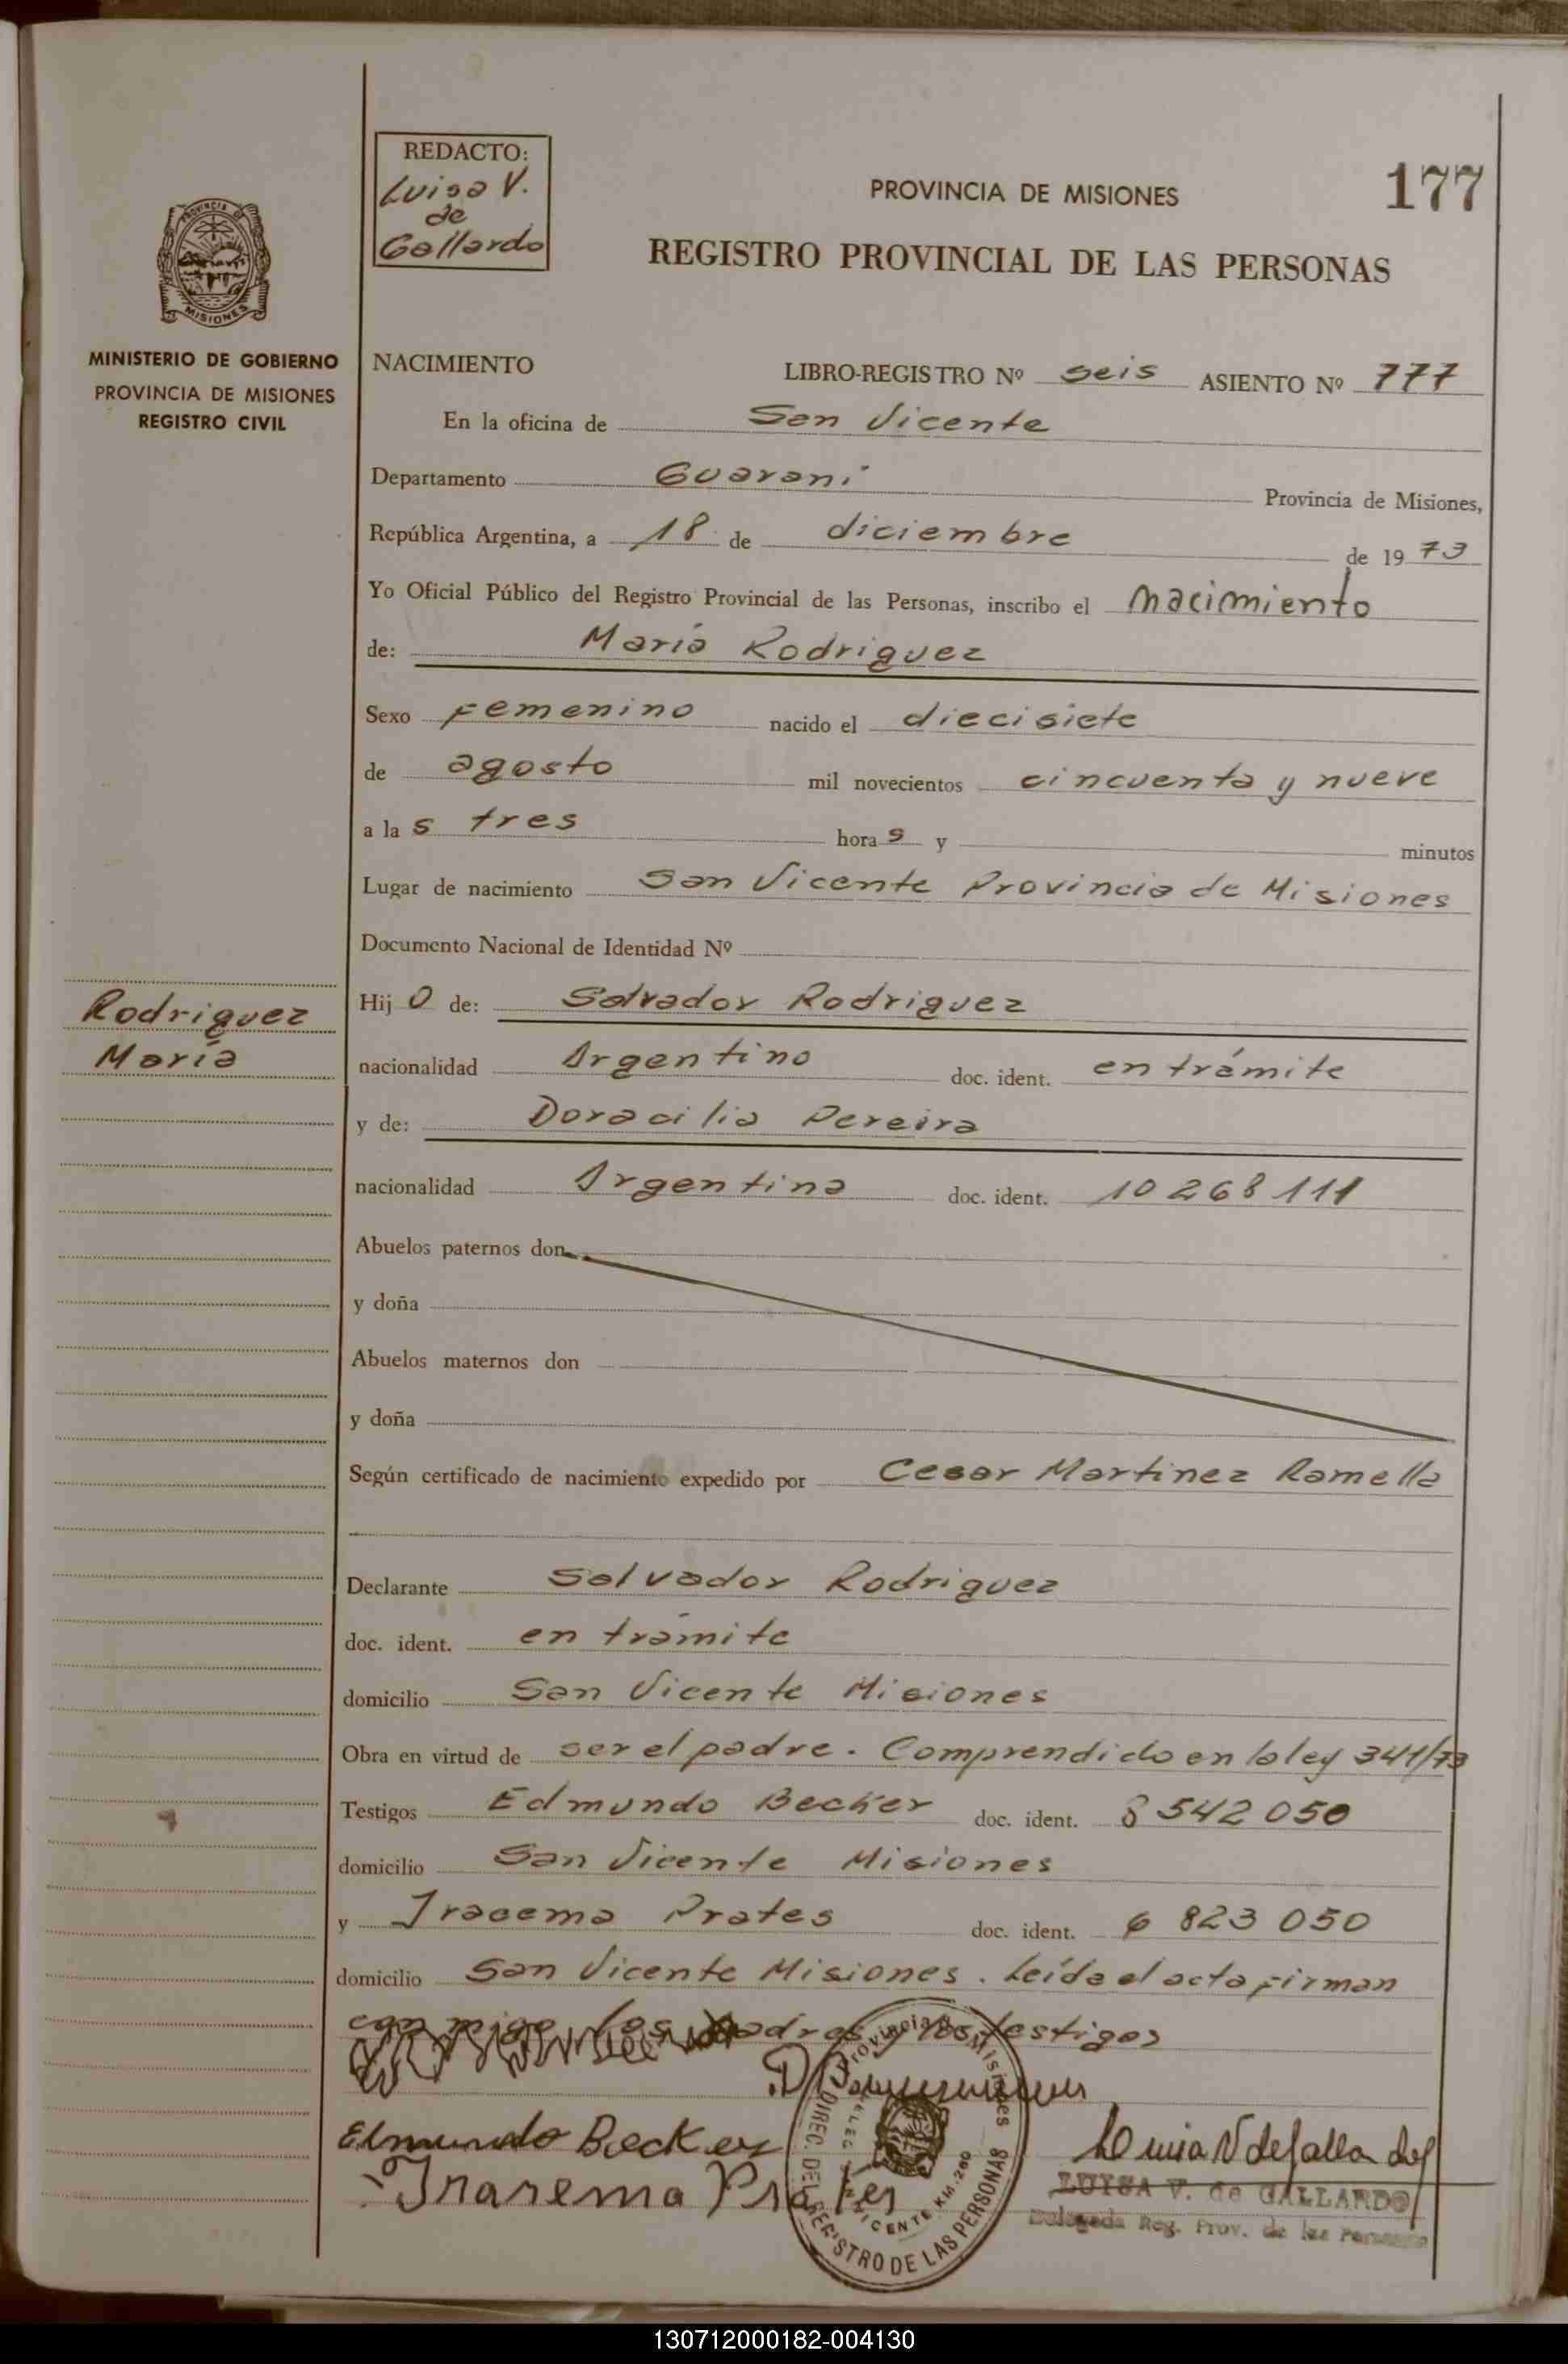 REDACTO:
Luisa V.
de
Gallardo
PROVINCIA DE MISIONES
177
REGISTRO PROVINCIAL DE LAS PERSONAS
PROVINCIA DE
MISIONES
MINISTERIO DE GOBIERNO
PROVINCIA DE MISIONES
REGISTRO CIVIL
NACIMIENTO LIBRO-REGISTRO Nº seis ASIENTO Nº 777
En la oficina de San Vicente
Departamento Guaraní Provincia de Misiones,
República Argentina, a 18 de diciembre de 1973
Yo Oficial Público del Registro Provincial de las Personas, inscribo el nacimiento
de: María Rodriguez
Sexo Femenino nacido el diecisiete
de agosto mil novecientos cincuenta y nueve
a las tres horas y minutos
Lugar de nacimiento San Vicente Provincia de Misiones
Documento Nacional de Identidad Nº
Rodriguez
María
Hijo de: Salvador Rodriguez
nacionalidad Argentino doc. ident. en trámite
y de: Doracilia Pereira
nacionalidad Argentina doc. ident. 10 268 111
Abuelos paternos don
y doña
Abuelos maternos don
y doña
Según certificado de nacimiento expedido por Cesar Martinez Ramella
Declarante Salvador Rodriguez
doc. ident. en trámite
domicilio San Vicente Misiones
Obra en virtud de ser el padre. Comprendido en la ley 341/73
Testigos Edmundo Becker doc. ident. 8 542 050
domicilio San Vicente Misiones
y Iracema Prates doc. ident. 6 823 050
domicilio San Vicente Misiones. Leída el acta firman
conmigo los padres y los testigos
Elmundo Becker
Irasema Prates
Luisa V de Gallardo
LUISA V. de GALLARDO
Delegada Reg. Prov. de las Personas
Provincia de Misiones
DIREC. DEL REGISTRO DE LAS PERSONAS
VICENTE KM. 260
130712000182-004130